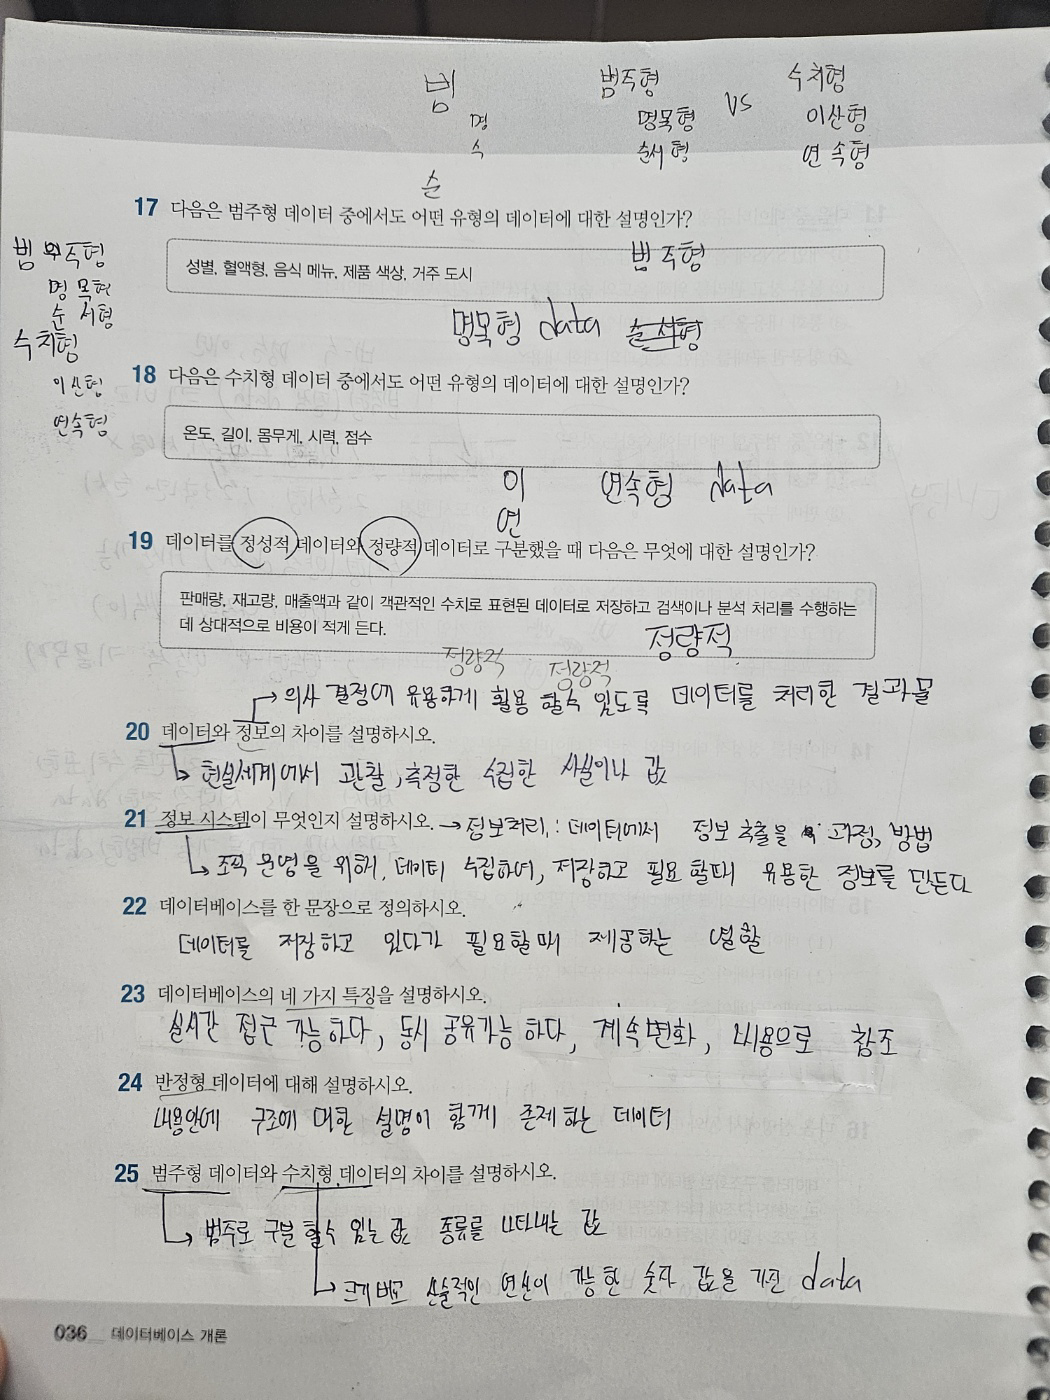 빔 범주형 vs 수치형
명 명목형 이산형
수 순서형 연속형
순
17 다음은 범주형 데이터 중에서도 어떤 유형의 데이터에 대한 설명인가?
범주형
명목형
순서형
수치형
이산형
연속형
성별, 혈액형, 음식 메뉴, 제품 색상, 거주 도시
범주형
명목형 data 순서형
18 다음은 수치형 데이터 중에서도 어떤 유형의 데이터에 대한 설명인가?
온도, 길이, 몸무게, 시력, 점수
이 연속형 data
연
19 데이터를 정성적 데이터와 정량적 데이터로 구분했을 때 다음은 무엇에 대한 설명인가?
판매량, 재고량, 매출액과 같이 객관적인 수치로 표현된 데이터로 저장하고 검색이나 분석 처리를 수행하는
데 상대적으로 비용이 적게 든다.
정량적
정량적 정량적
→ 의사 결정에 유용하게 활용 할수 있도록 데이터를 처리한 결과물
20 데이터와 정보의 차이를 설명하시오.
↳ 현실세계에서 관찰, 측정한 수집한 사실이나 값
21 정보 시스템이 무엇인지 설명하시오. → 정보처리, : 데이터에서 정보 추출을 과정, 방법
↳ 조직 운영을 위해, 데이터 수집하여, 저장하고 필요 할때 유용한 정보를 만든다
22 데이터베이스를 한 문장으로 정의하시오.
데이터를 저장하고 있다가 필요할때 제공하는 역할
23 데이터베이스의 네 가지 특징을 설명하시오.
실시간 접근 가능하다, 동시 공유가능 하다, 계속변화, 내용으로 참조
24 반정형 데이터에 대해 설명하시오.
내용안에 구조에 대한 설명이 함께 존재하는 데이터
25 범주형 데이터와 수치형 데이터의 차이를 설명하시오.
↳ 범주로 구분 할수 있는 값 종류를 나타내는 값
↳ 크기비교 산술적인 연산이 가능한 숫자 값을 가진 data
036 데이터베이스 개론